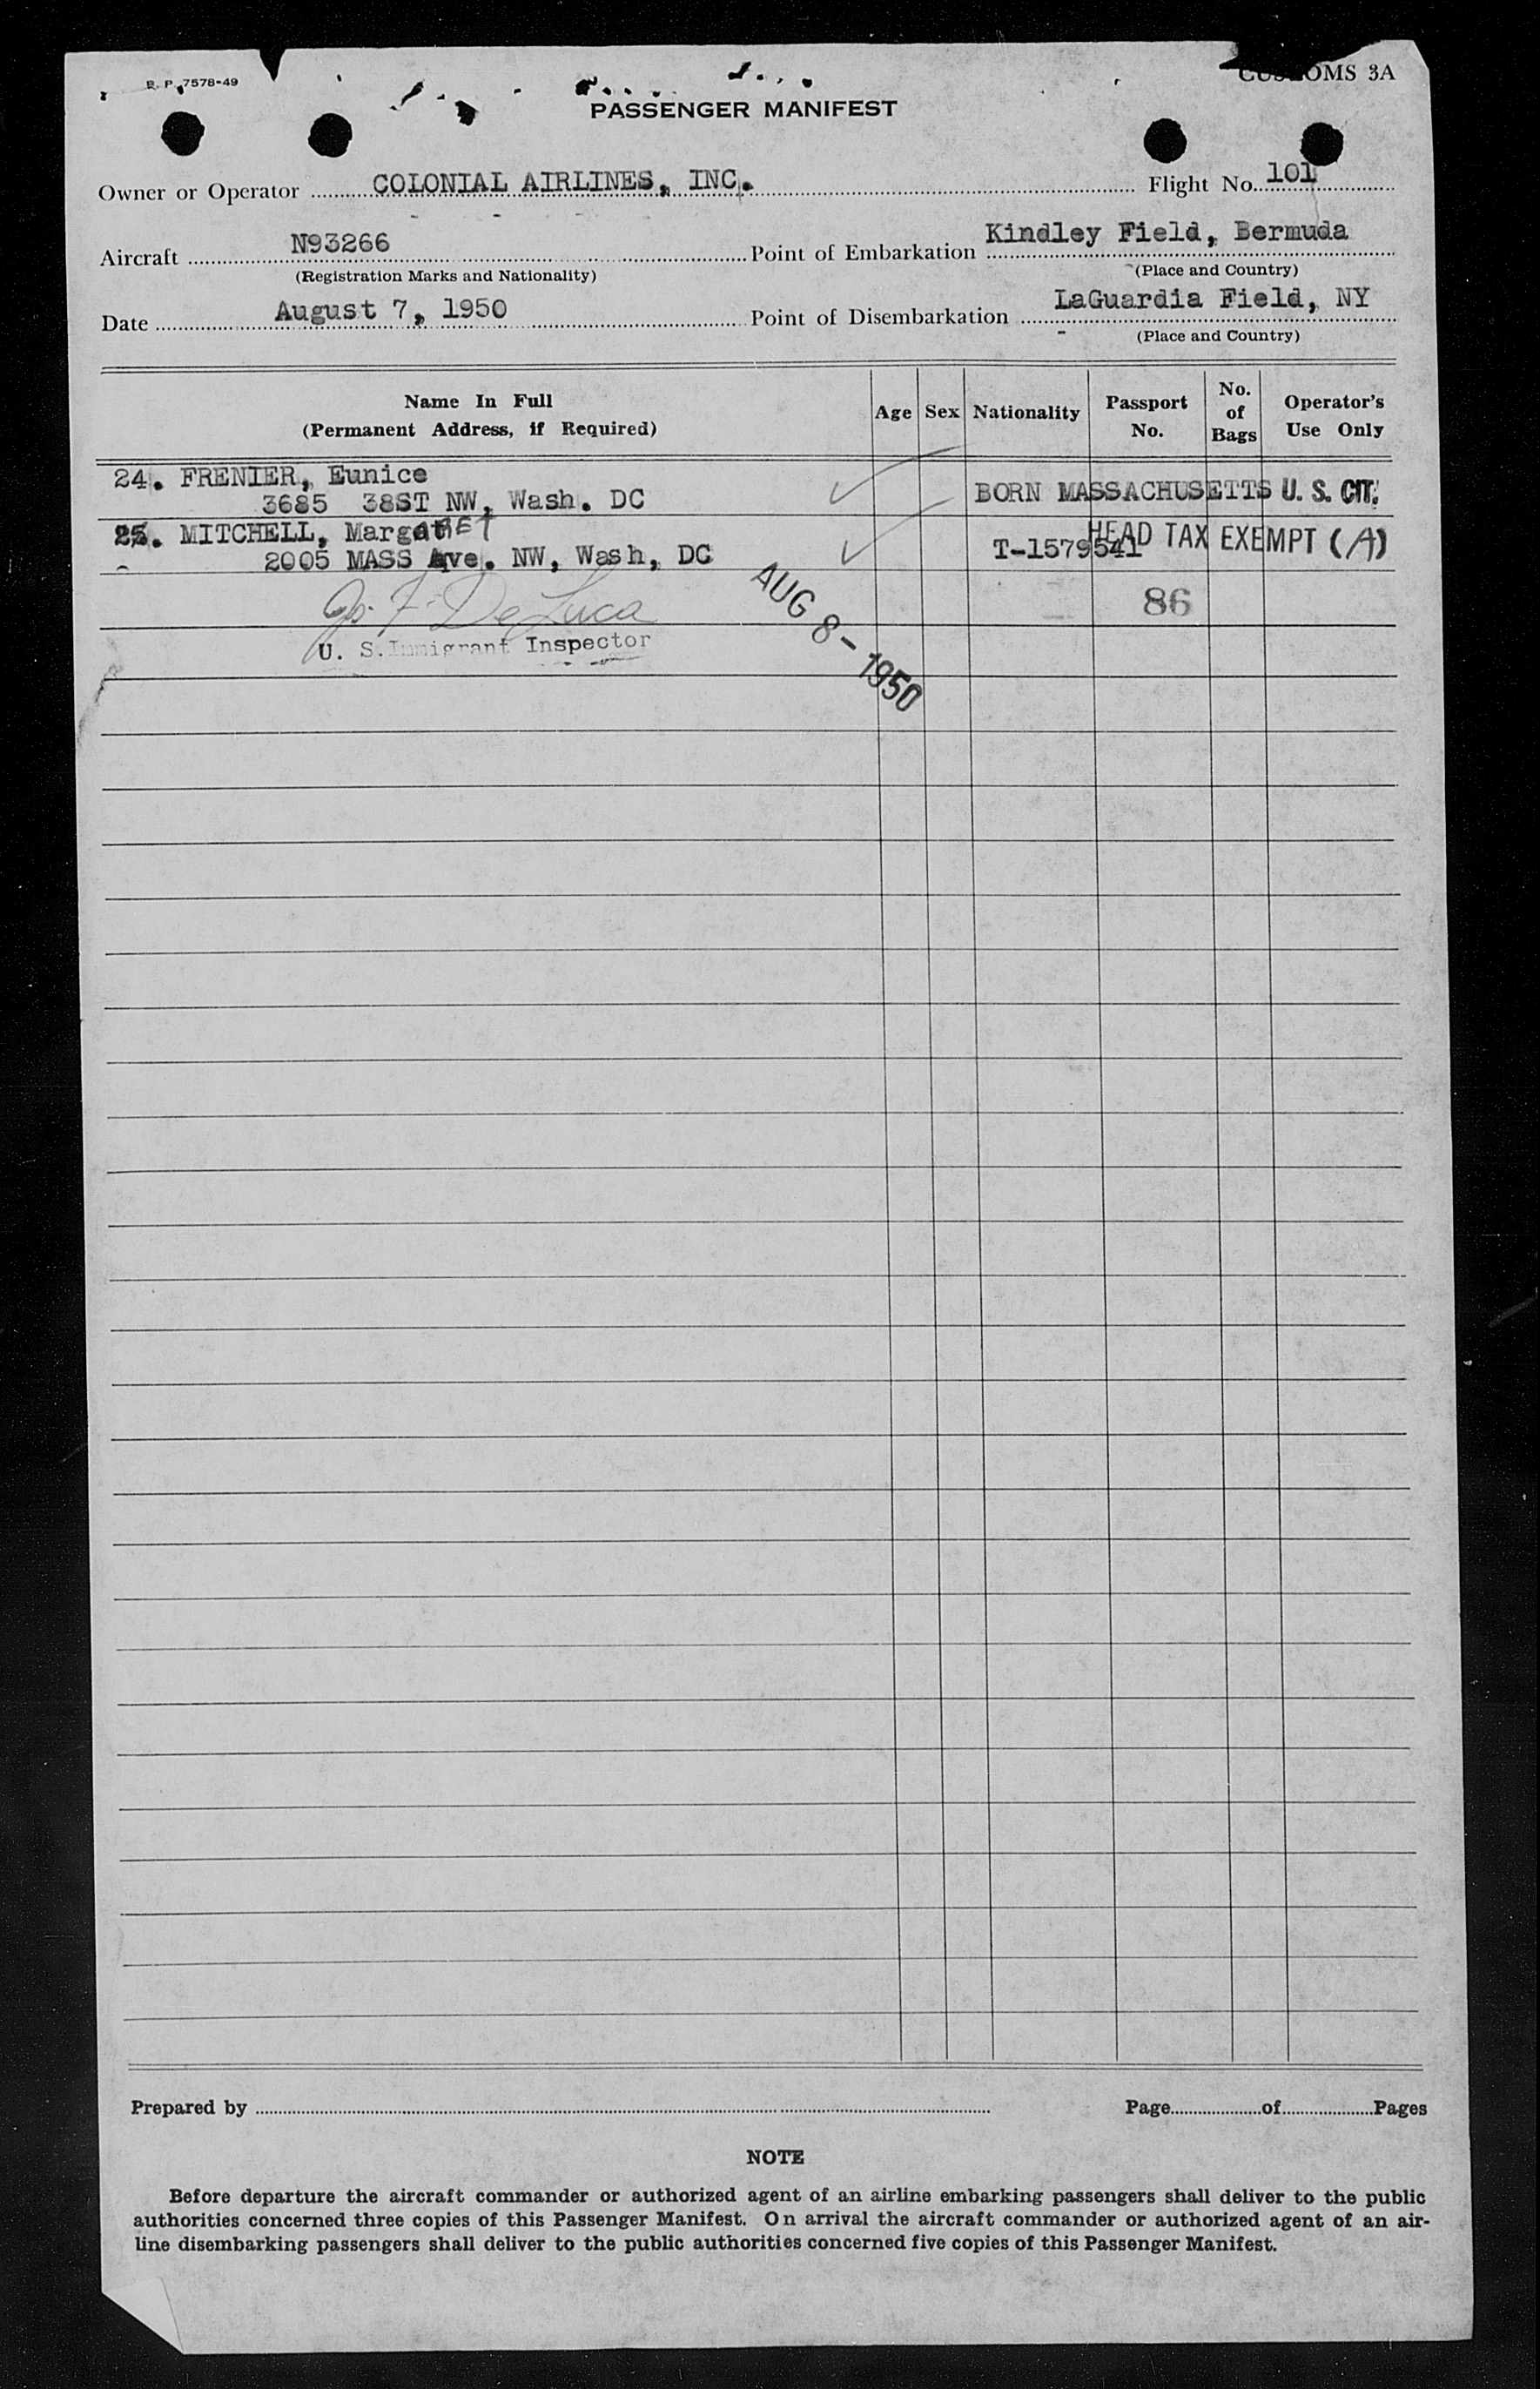 R. P. 7578-49
CUSTOMS 3A
PASSENGER MANIFEST
Owner or Operator COLONIAL AIRLINES, INC. Flight No. 101
Aircraft N93266 Point of Embarkation Kindley Field, Bermuda
(Registration Marks and Nationality) (Place and Country)
Date August 7, 1950 Point of Disembarkation LaGuardia Field, NY
(Place and Country)
Name In Full (Permanent Address, if Required) Age Sex Nationality Passport No. No. of Bags Operator's Use Only
24. FRENIER, Eunice
3685 38ST NW, Wash. DC BORN MASSACHUSETTS U. S. CIT.
25. MITCHELL, MargaRET HEAD TAX EXEMPT (A)
2005 MASS Ave. NW, Wash, DC T-1579541
De Luca 86
U. S. Immigrant Inspector
AUG 8 - 1950
Prepared by Page of Pages
NOTE
Before departure the aircraft commander or authorized agent of an airline embarking passengers shall deliver to the public
authorities concerned three copies of this Passenger Manifest. On arrival the aircraft commander or authorized agent of an air-
line disembarking passengers shall deliver to the public authorities concerned five copies of this Passenger Manifest.